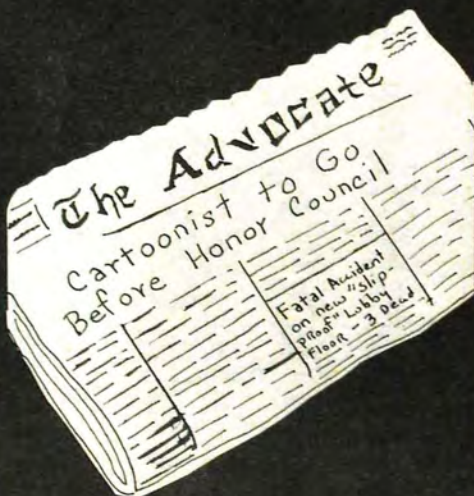 The Advocate
Cartoonist to Go
Before Honor Council
Fatal Accident
on new "slip-
PROOF" Lobby
FlooR - 3 Dead